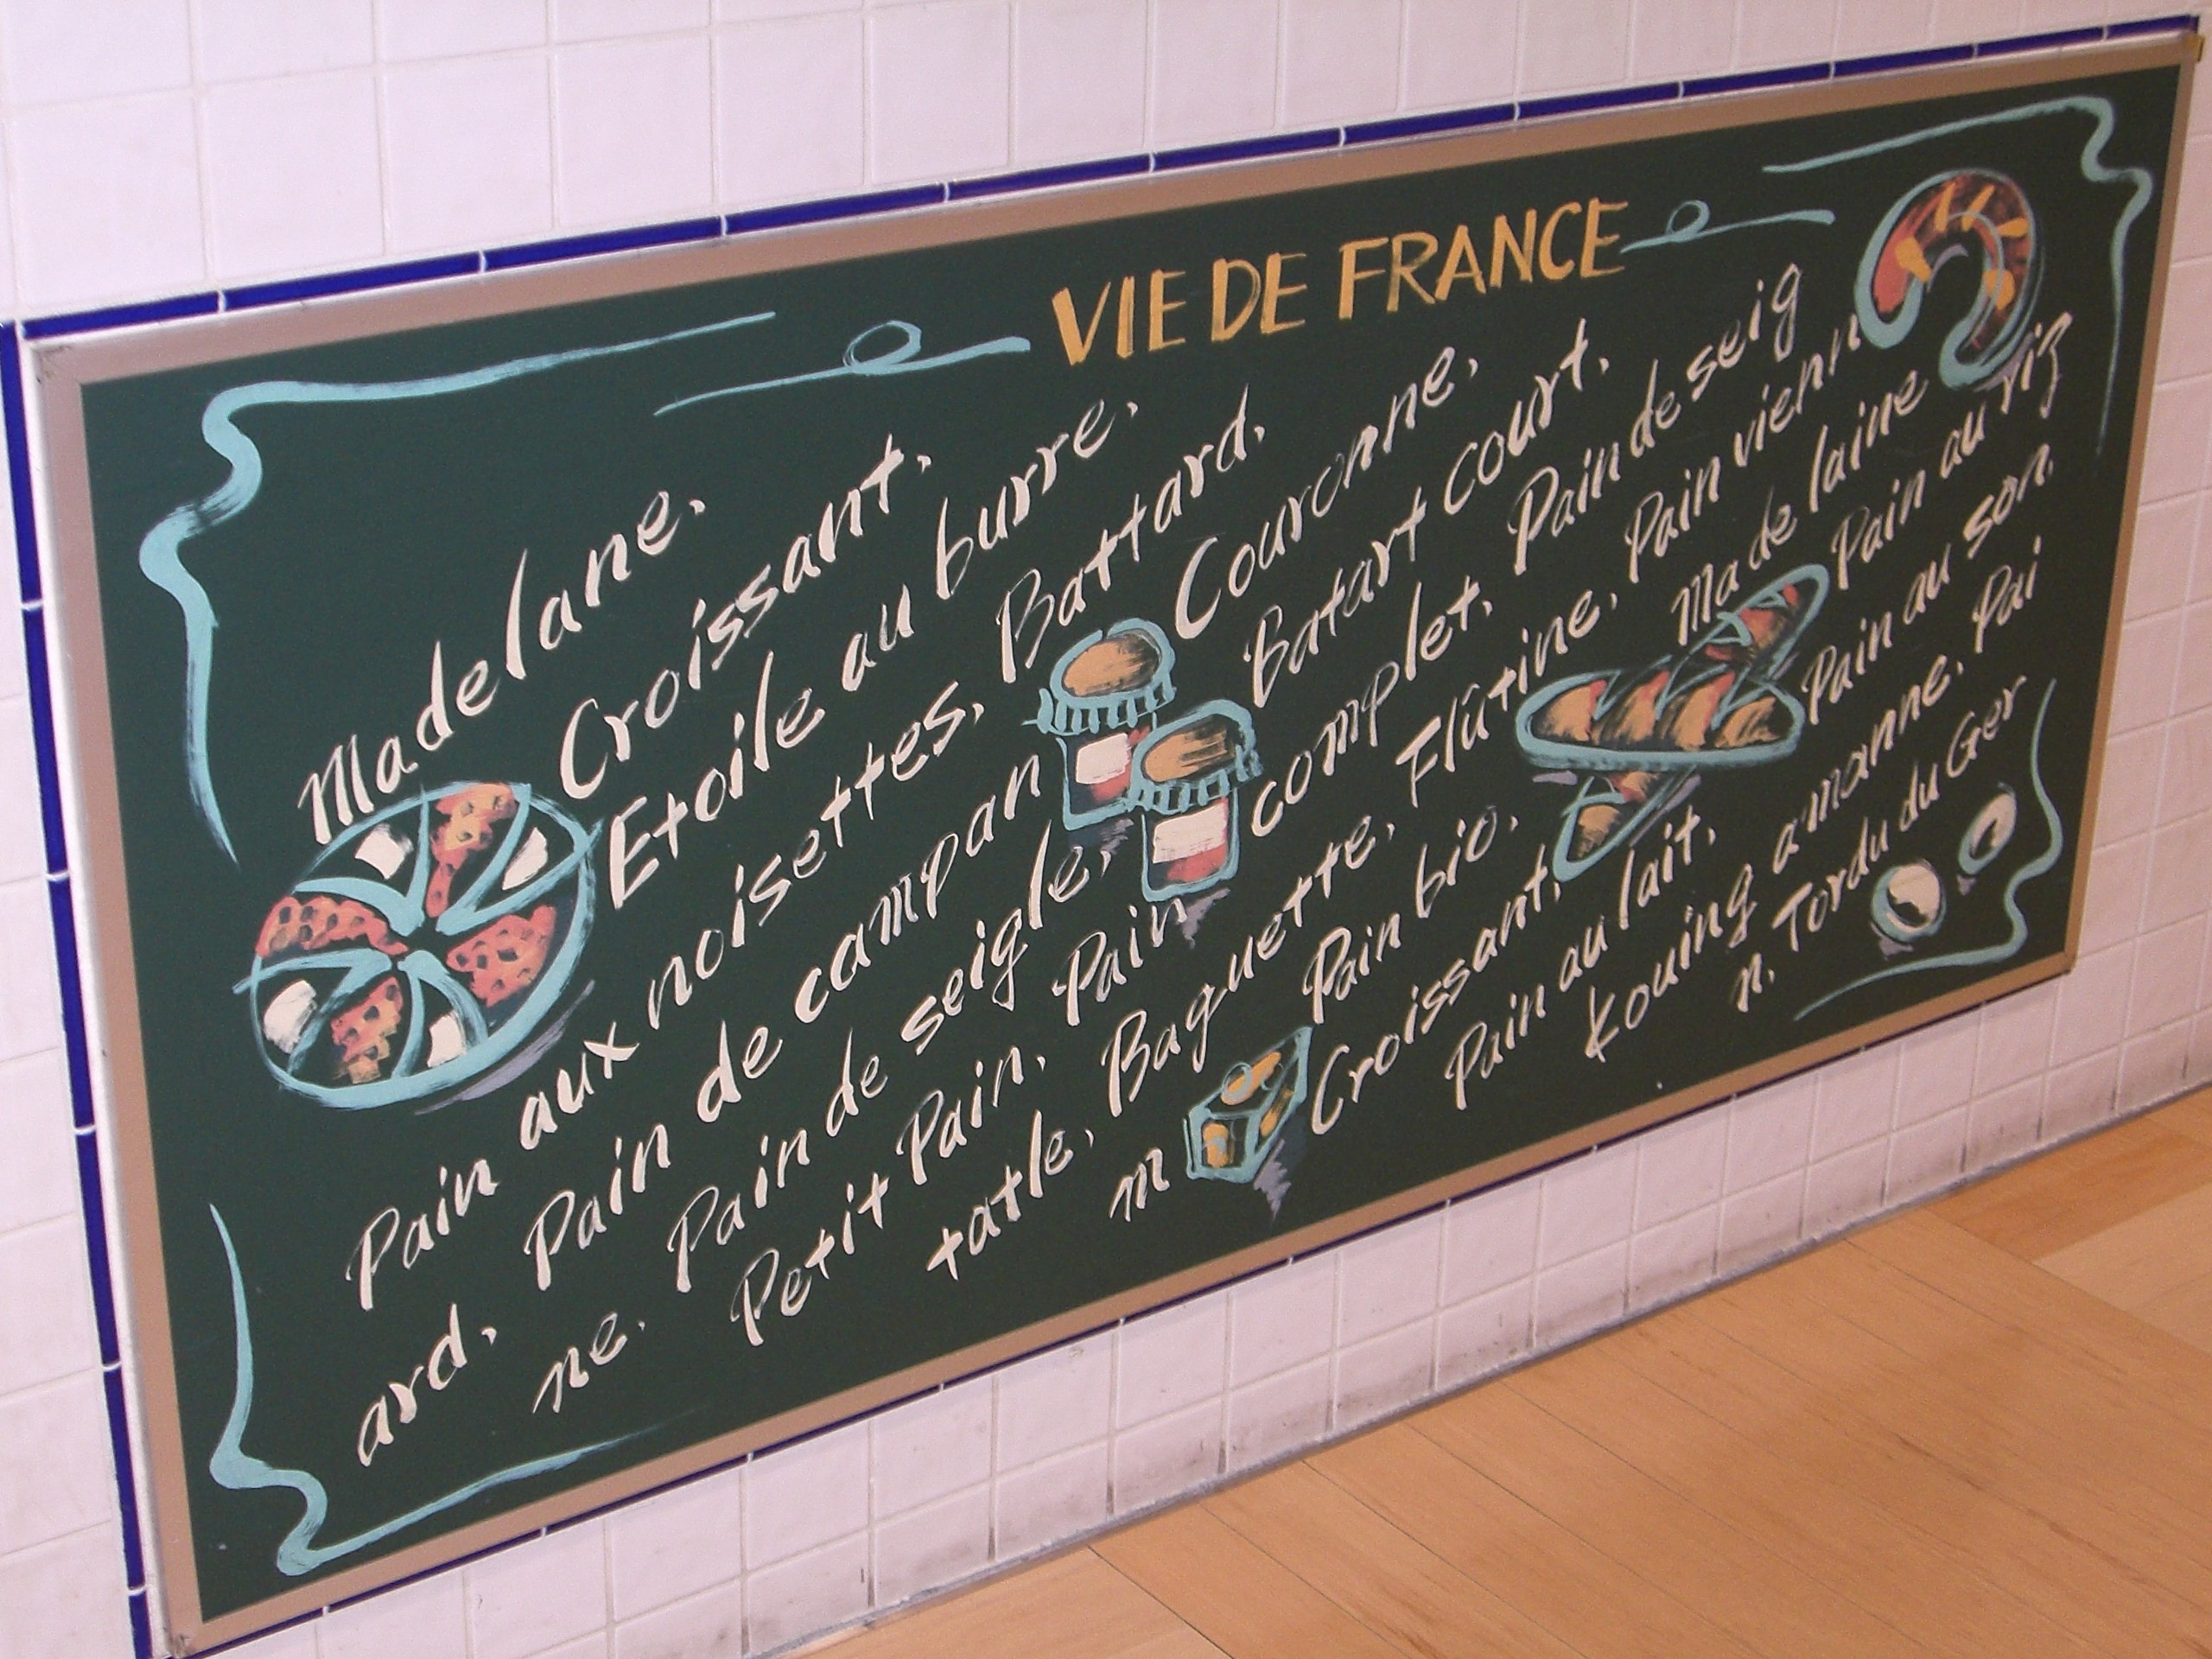 VIE DE FRANCE
Madelane.
Croissant.
Etoile au burre.
Pain aux noisettes. Battard.
ard. Pain de campan Couronne.
ne. Pain de seigle. Batart court.
Petit Pain. Pain complet. Pain de seig
tatle. Baguette. Flûtine. Pain vienn
m Pain bio. Made laine
Croissant. Pain au riz
Pain au lait. Pain au son.
Kouing amanne. Pai
n. Tordu du Ger